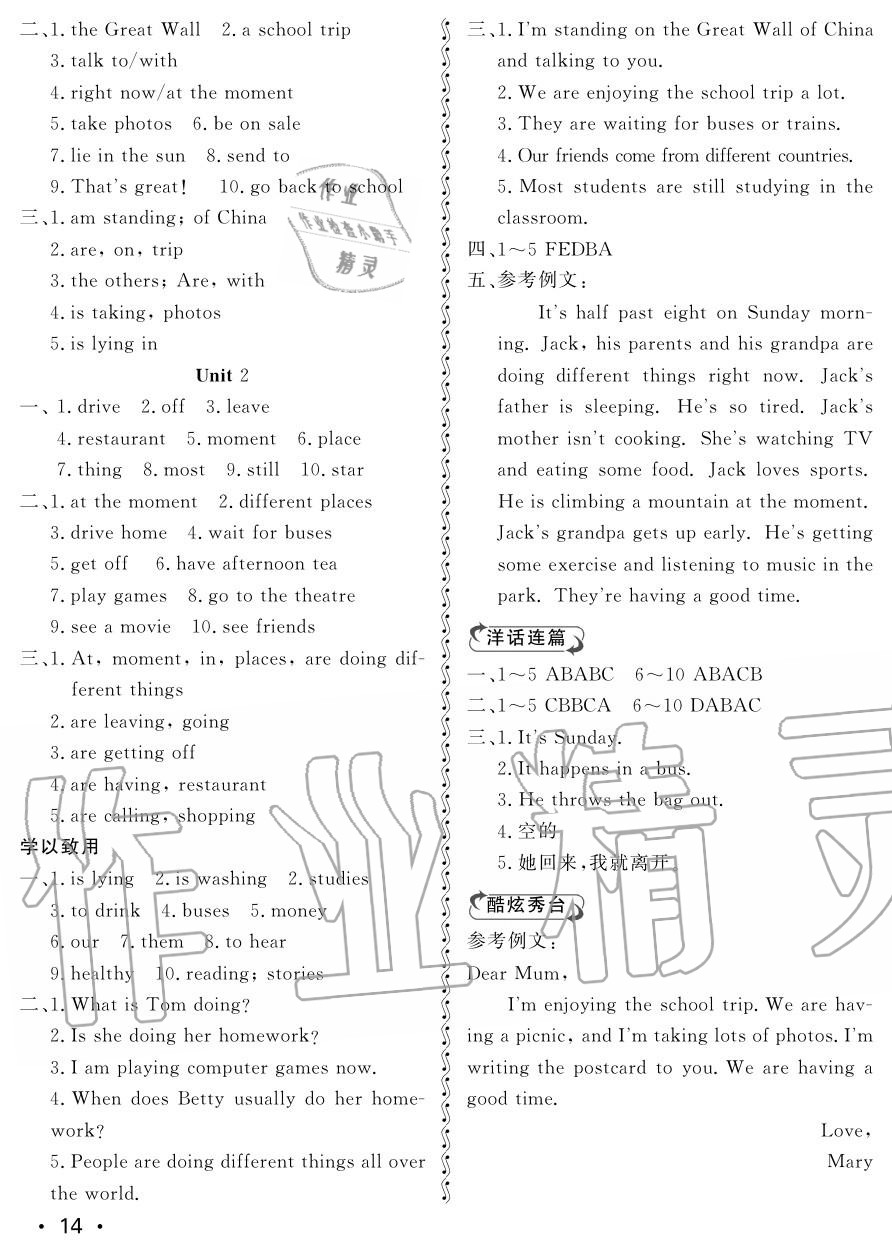 二、1. the Great Wall 2. a school trip
3. talk to/with
4. right now/at the moment
5. take photos 6. be on sale
7. lie in the sun 8. send to
9. That's great! 10. go back to school
三、1. am standing; of China
2. are, on, trip
3. the others; Are, with
4. is taking, photos
5. is lying in
Unit 2
一、1. drive 2. off 3. leave
4. restaurant 5. moment 6. place
7. thing 8. most 9. still 10. star
二、1. at the moment 2. different places
3. drive home 4. wait for buses
5. get off 6. have afternoon tea
7. play games 8. go to the theatre
9. see a movie 10. see friends
三、1. At, moment, in, places, are doing dif-
ferent things
2. are leaving, going
3. are getting off
4. are having, restaurant
5. are calling, shopping
学以致用
一、1. is lying 2. is washing 2. studies
3. to drink 4. buses 5. money
6. our 7. them 8. to hear
9. healthy 10. reading; stories
二、1. What is Tom doing?
2. Is she doing her homework?
3. I am playing computer games now.
4. When does Betty usually do her home-
work?
5. People are doing different things all over
the world.
· 14 ·
三、1. I'm standing on the Great Wall of China
and talking to you.
2. We are enjoying the school trip a lot.
3. They are waiting for buses or trains.
4. Our friends come from different countries.
5. Most students are still studying in the
classroom.
四、1～5 FEDBA
五、参考例文:
It's half past eight on Sunday morn-
ing. Jack, his parents and his grandpa are
doing different things right now. Jack's
father is sleeping. He's so tired. Jack's
mother isn't cooking. She's watching TV
and eating some food. Jack loves sports.
He is climbing a mountain at the moment.
Jack's grandpa gets up early. He's getting
some exercise and listening to music in the
park. They're having a good time.
洋话连篇
一、1～5 ABABC 6～10 ABACB
二、1～5 CBBCA 6～10 DABAC
三、1. It's Sunday.
2. It happens in a bus.
3. He throws the bag out.
4. 空的
5. 她回来,我就离开。
酷炫秀台
参考例文:
Dear Mum,
I'm enjoying the school trip. We are hav-
ing a picnic, and I'm taking lots of photos. I'm
writing the postcard to you. We are having a
good time.
Love,
Mary
作业
作业检查小帮手
精灵
作业精灵